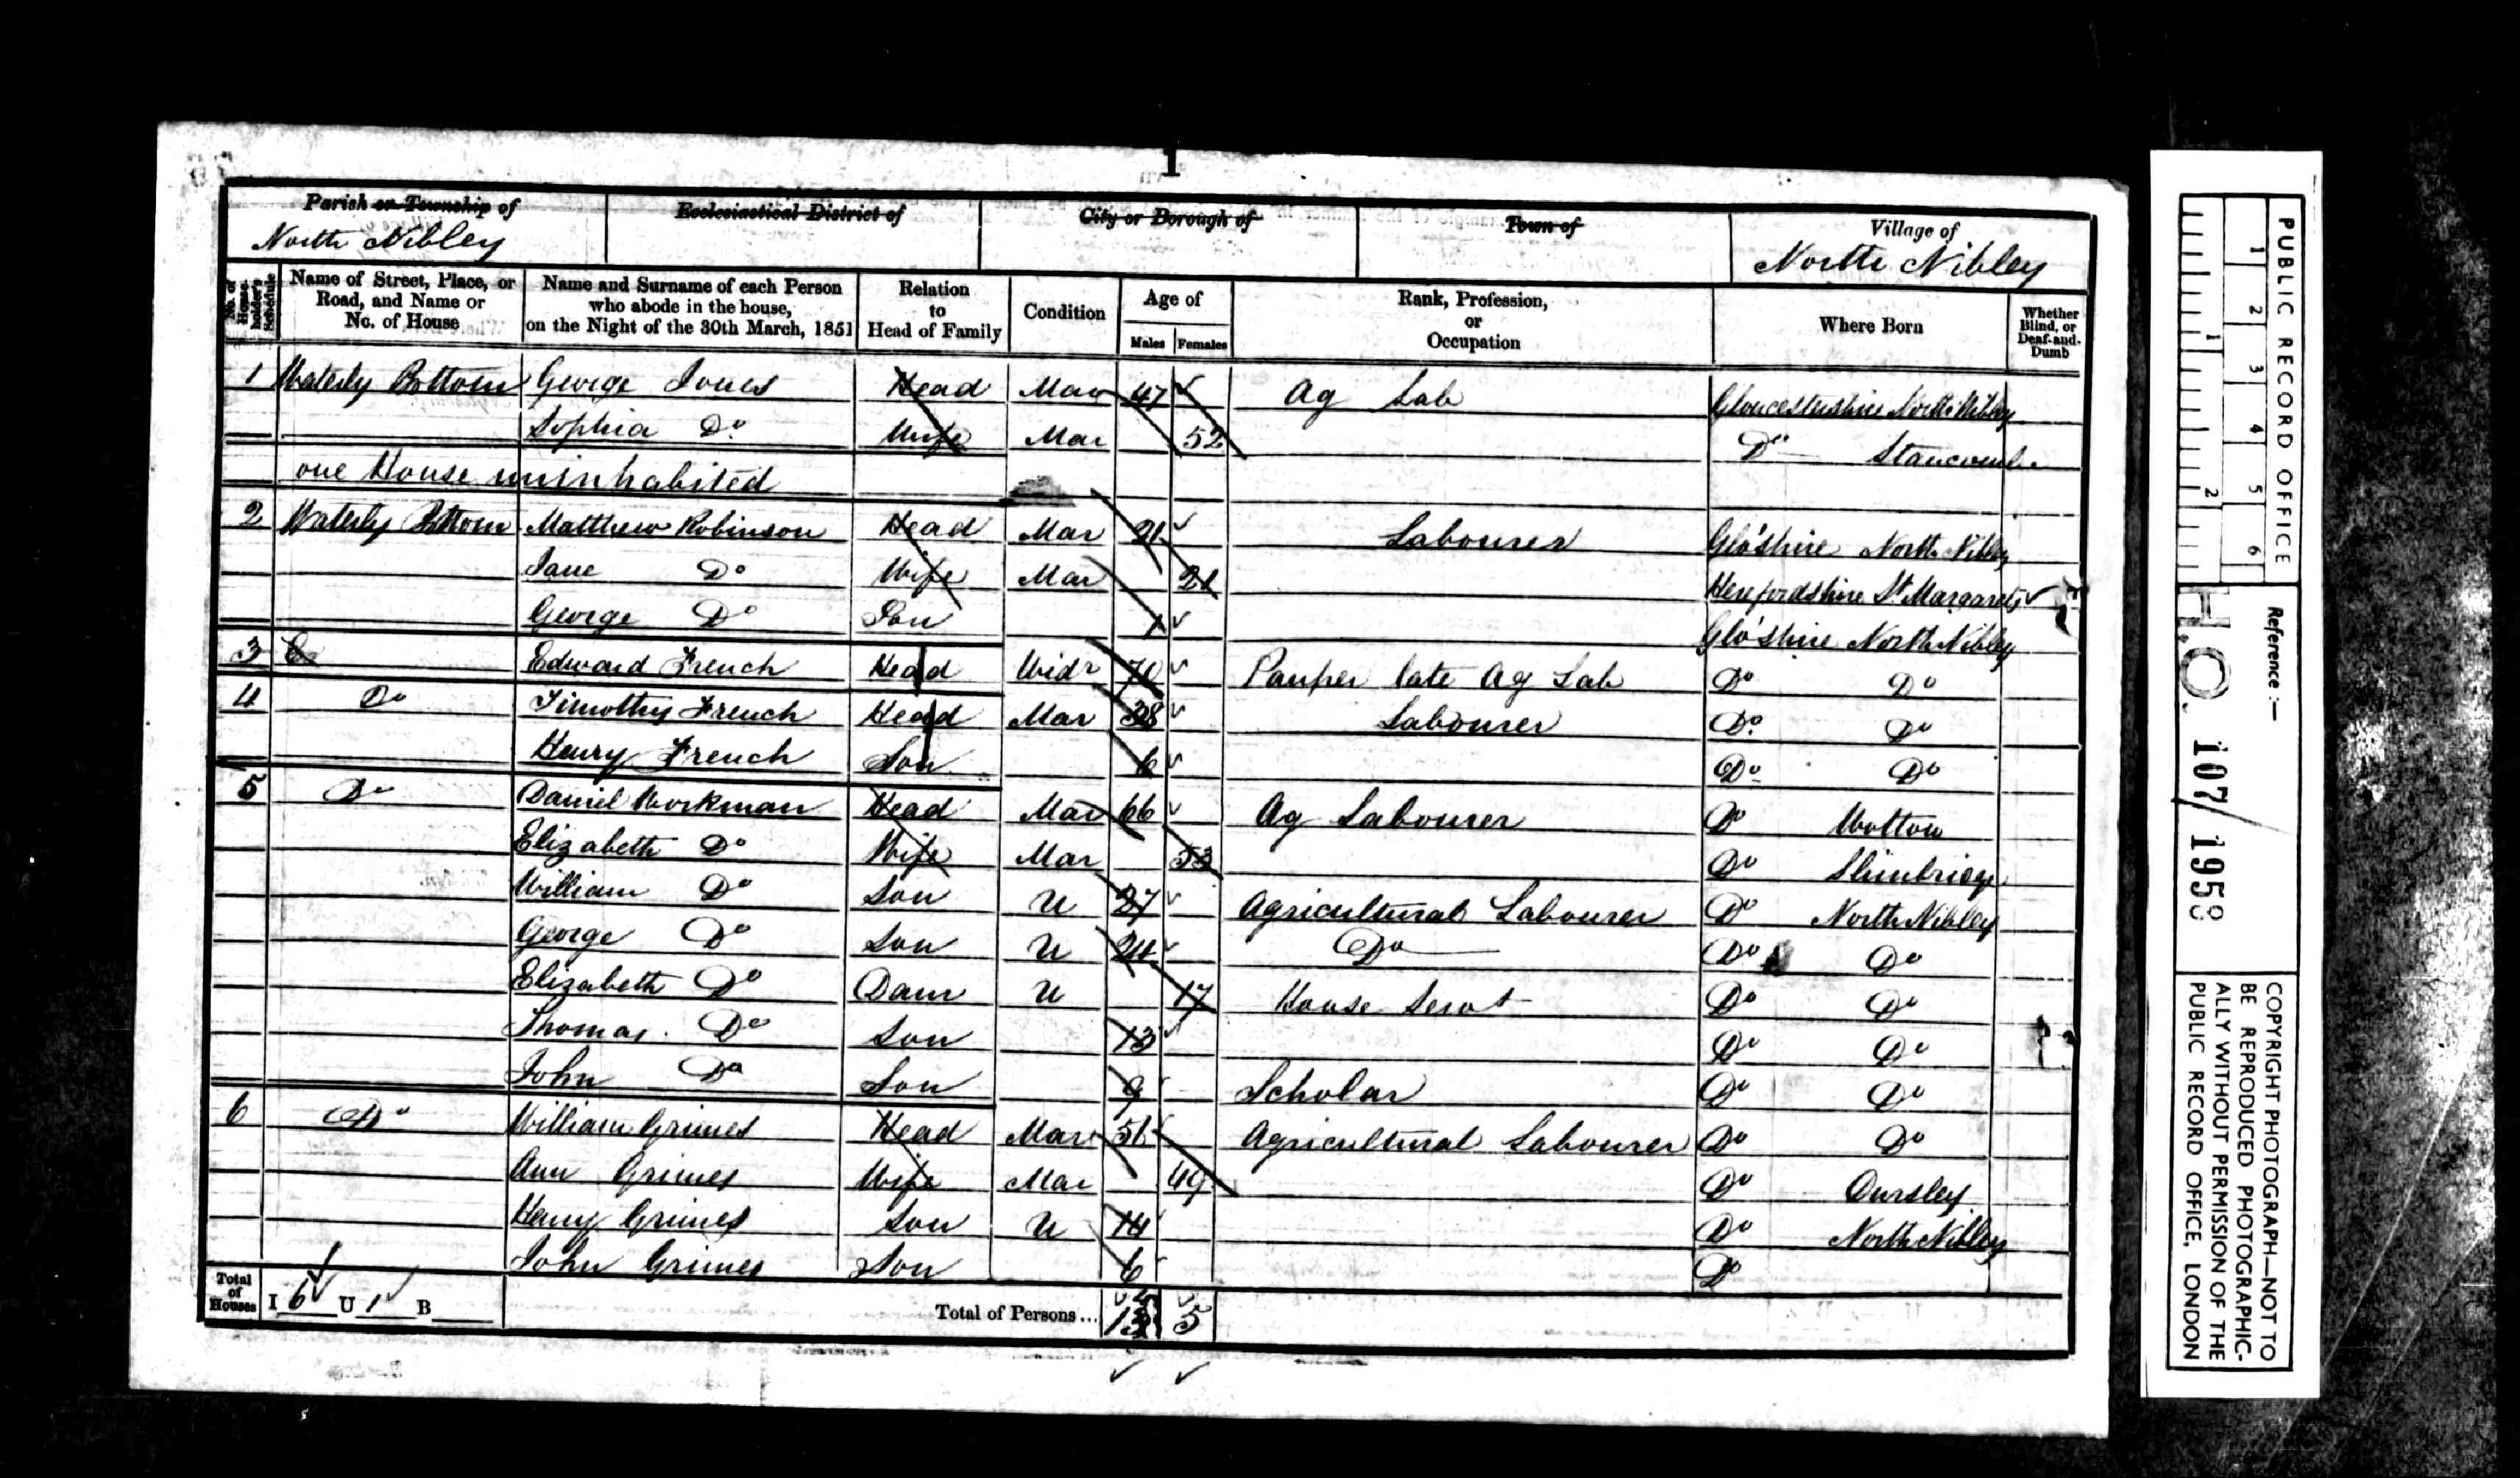 1
Parish or Township of
North Nibley
Ecclesiastical District of
City or Borough of
Town of
Village of
North Nibley
No. of House-holder's Schedule
Name of Street, Place, or Road, and Name or No. of House
Name and Surname of each Person who abode in the house, on the Night of the 30th March, 1851
Relation to Head of Family
Condition
Age of
Males Females
Rank, Profession, or Occupation
Where Born
Whether Blind, or Deaf-and-Dumb
1 Waterly Bottom George Jones Head Mar 47 Ag Lab Gloucestershire North Nibley
Sophia Do Wife Mar 52 Do Stancomb
one House uninhabited
2 Waterly Bottom Matthew Robinson Head Mar 21 Labourer Glo'shire North Nibley
Jane Do Wife Mar 21 Herefordshire St Margarets
George Do Son 1 Glo'shire North Nibley
3 Edward French Head Widr 70 Pauper late Ag Lab Do Do
4 Do Timothy French Head Mar 38 Labourer Do Do
Henry French Son 6 Do Do
5 Do Daniel Workman Head Mar 66 Ag Labourer Do Wotton
Elizabeth Do Wife Mar 53 Do Slimbridge
William Do Son U 27 Agricultural Labourer Do North Nibley
George Do Son U 24 Do Do Do
Elizabeth Do Daur U 17 House Servt Do Do
Thomas Do Son 13 Do Do
John Do Son 9 Scholar Do Do
6 Do William Grimes Head Mar 51 Agricultural Labourer Do Do
Ann Grimes Wife Mar 49 Do Dursley
Henry Grimes Son U 14 Do North Nibley
John Grimes Son 6 Do
Total of Houses I 6 U 1 B
Total of Persons... 13 5
PUBLIC RECORD OFFICE
1 2 3 4 5 6
1 2
Reference:—
H.O. 107/1958
COPYRIGHT PHOTOGRAPH—NOT TO BE REPRODUCED PHOTOGRAPHIC-ALLY WITHOUT PERMISSION OF THE PUBLIC RECORD OFFICE, LONDON